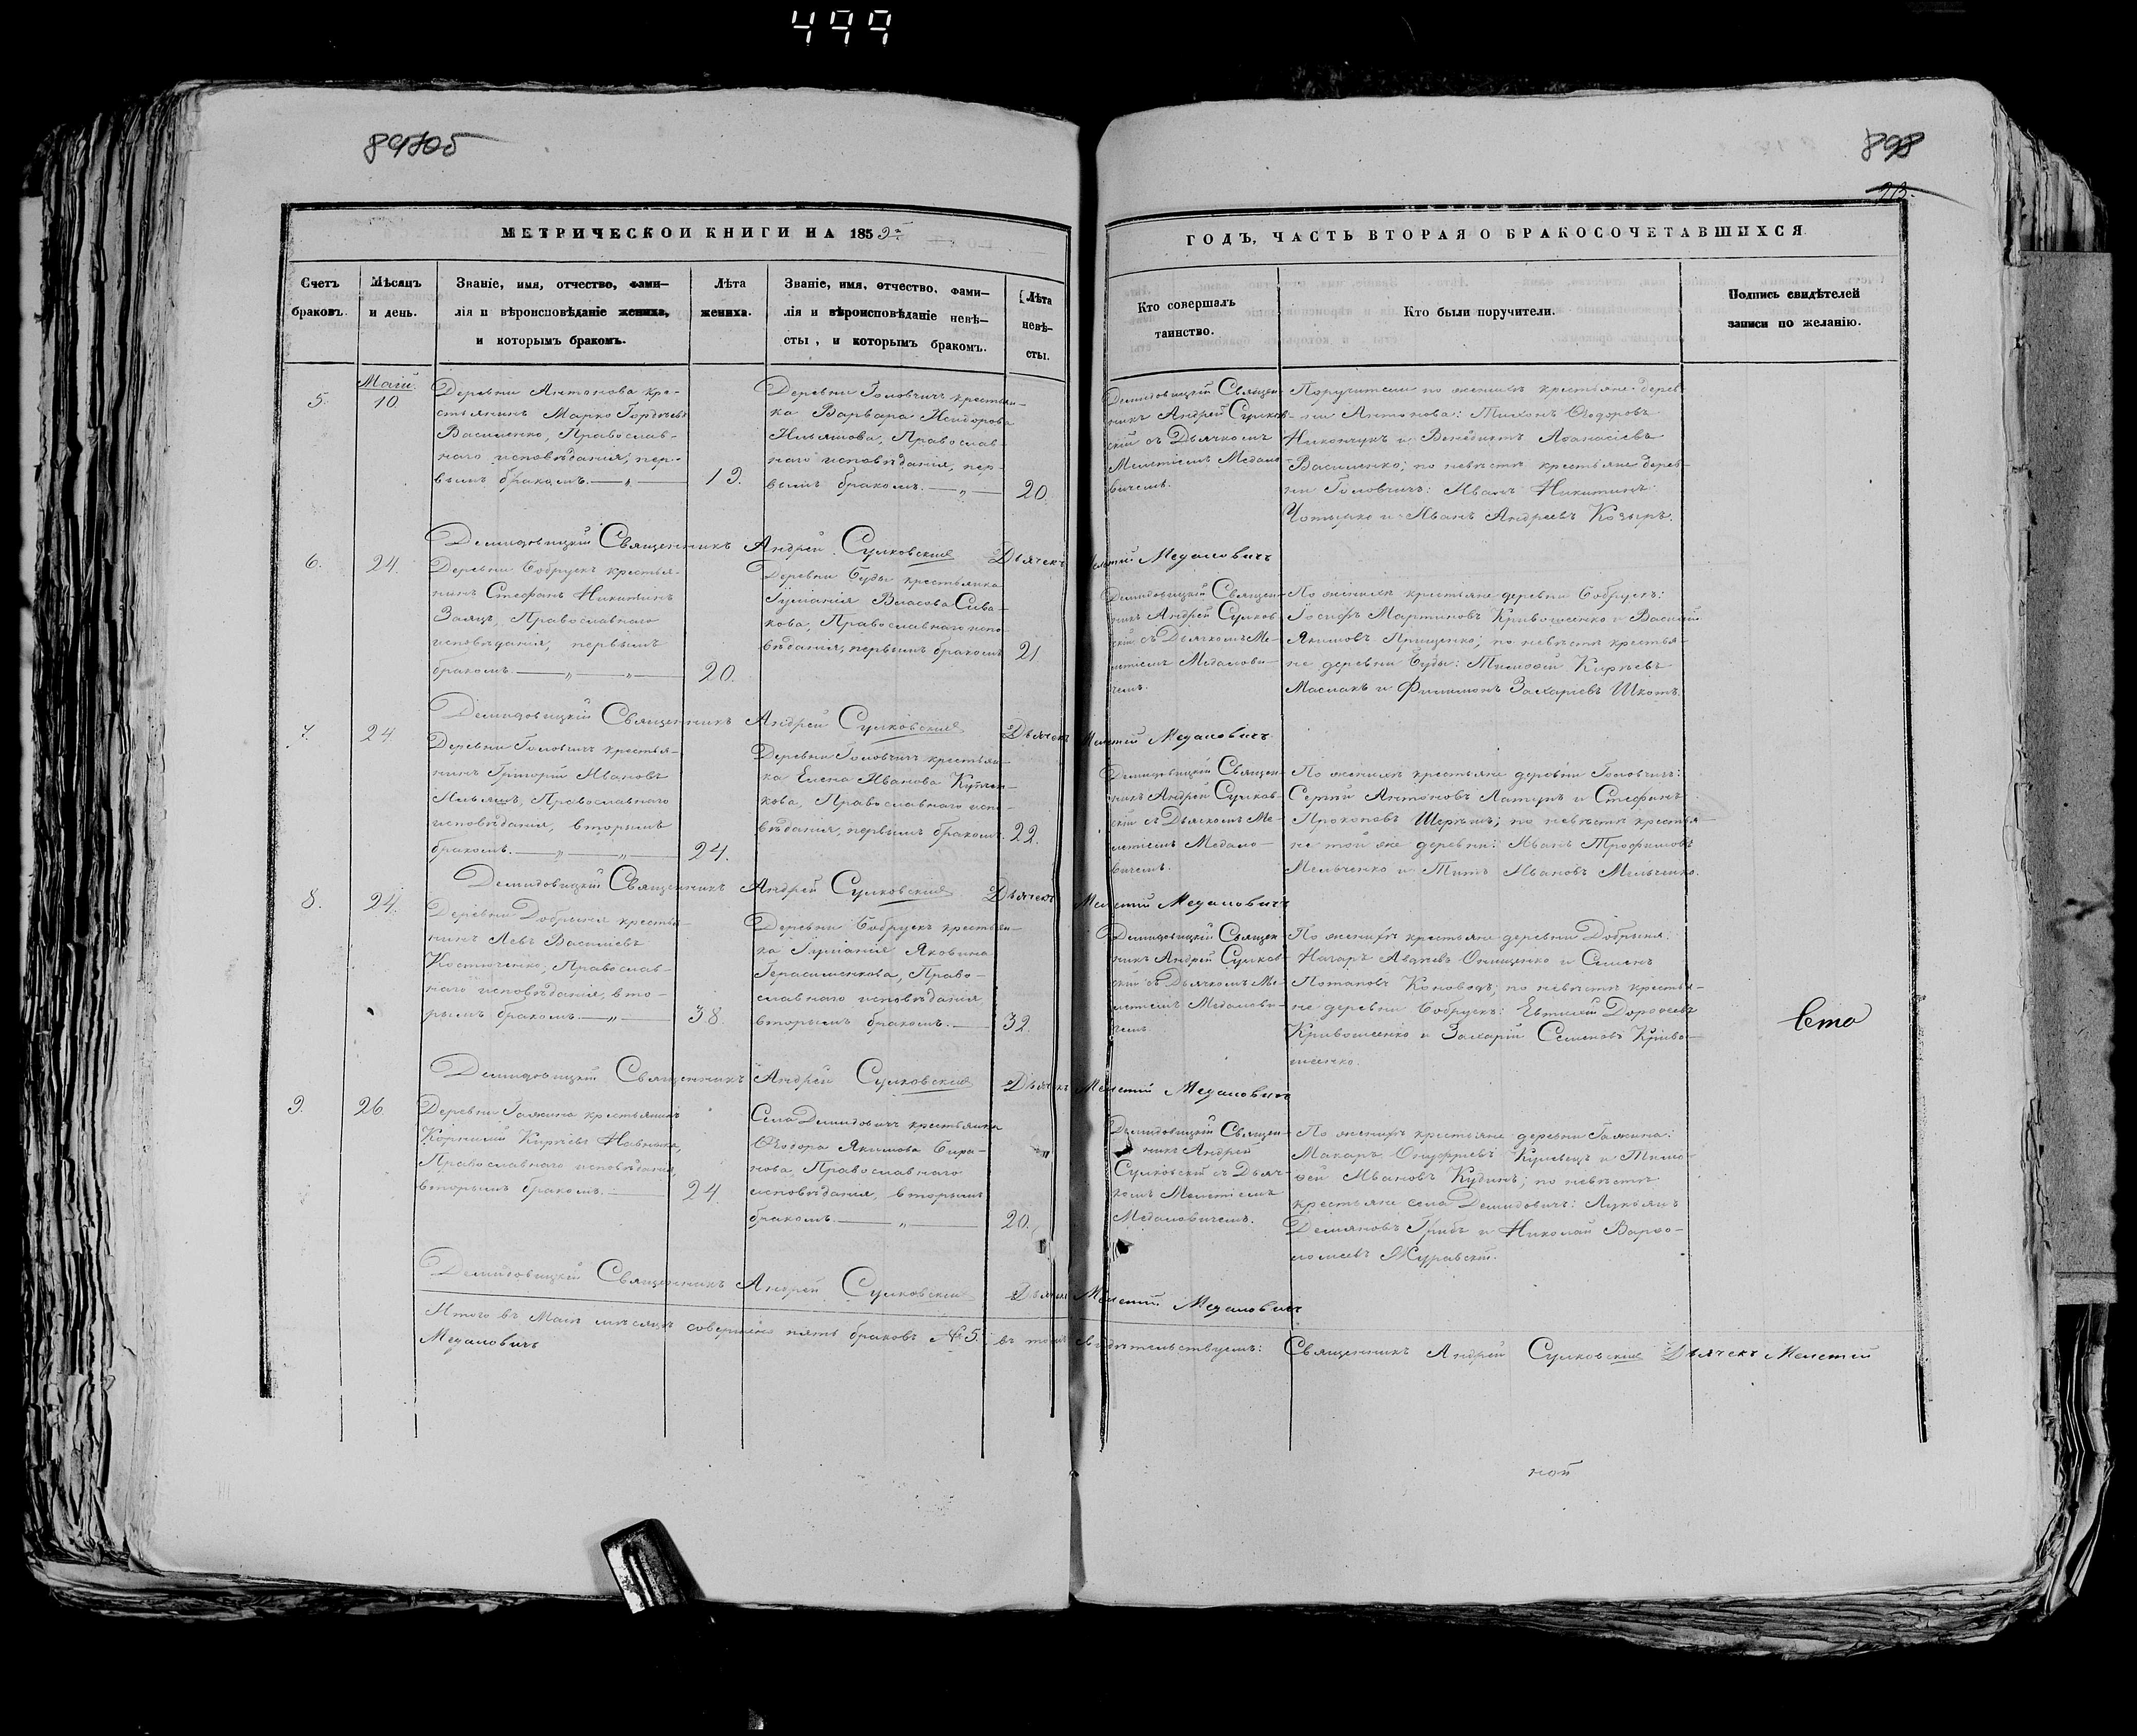 499
897об
898
213.
МЕТРИЧЕСКОЙ КНИГИ НА 1859й
ГОДЪ, ЧАСТЬ ВТОРАЯ О БРАКОСОЧЕТАВШИХСЯ
Счетъ
браковъ.
Мѣсяцъ
и день.
Званіе, имя, отчество, фами—
лія и вѣроисповѣданіе жениха,
и которымъ бракомъ.
Лѣта
жениха.
Званіе, имя, отчество, фами—
лія и вѣроисповѣданіе невѣ—
сты, и которымъ бракомъ.
Лѣта
невѣ—
сты.
Кто совершалъ
таинство.
Кто были поручители.
Подпись свидѣтелей
записи по желанію.
5.
Маій.
10.
Деревни Антонова кре-
стьянинъ Марко Гордѣевъ
Василенко, Православ-
наго исповѣданія, пер-
вымъ бракомъ.
19.
Деревни Головчичъ крестьян-
ка Варвара Исидорова
Ильяшова, Православ-
наго исповѣданія, пер-
вымъ бракомъ.
20.
Демидовицкій Священ-
никъ Андрей Сулков-
скій съ Дьячкомъ
Мелетіемъ Медало-
вичемъ.
Поручители по женихѣ крестьяне дерев-
ни Антонова: Тихонъ Ѳеодоровъ
Никончукъ и Венедиктъ Аѳанасіевъ
Василенко; по невѣстѣ крестьяне дерев-
ни Головчичъ: Иванъ Никитинъ
Чотырко и Иванъ Андреевъ Козыръ.
Демидовицкій Священникъ Андрей Сулковскій Дьячекъ Мелетій Медаловичъ
6.
24.
Деревни Бобрускъ крестья-
нинъ Стефанъ Никитинъ
Заяцъ, Православнаго
исповѣданія, первымъ
бракомъ.
20.
Деревни Буды крестьянка
Іуліанія Власова Сива-
кова, Православнаго испо-
вѣданія, первымъ бракомъ
21
Демидовицкій Священ-
никъ Андрей Сулков-
скій съ Дьячкомъ Ме-
летіемъ Медалови-
чемъ.
По женихѣ крестьяне деревни Бобрускъ:
Іосифъ Мартиновъ Кривошеенко и Василій
Якимовъ Прищенко; по невѣстѣ крестья-
не деревни Буды: Тимоѳей Кирѣевъ
Маслакъ и Филимонъ Захаріевъ Шкотъ.
Демидовицкій Священникъ Андрей Сулковскій Дьячекъ Мелетій Медаловичъ
7.
24.
Деревни Головчичъ крестья-
нинъ Григорій Ивановъ
Ильяшъ, Православнаго
исповѣданія, вторымъ
бракомъ.
24.
Деревни Головчичъ крестьян-
ка Елена Иванова
кова, Православнаго испо-
вѣданія, первымъ бракомъ.
22.
Демидовицкій Священ-
никъ Андрей Сулков-
скій съ Дьячкомъ Ме-
летіемъ Медало-
вичемъ.
По женихѣ крестьяне деревни Головчичъ:
Сергій Антоновъ Лапунъ и Стефанъ
Прокоповъ по невѣстѣ крестья-
не той же деревни: Иванъ Трофимовъ
Мельченко и Титъ Ивановъ Мельченко.
Демидовицкій Священникъ Андрей Сулковскій Дьячекъ Мелетій Медаловичъ
8.
24.
Деревни Добрыня крестья-
нинъ Левъ Василіевъ
Костюченко, Православ-
наго исповѣданія, вто-
рымъ бракомъ.
38.
Деревни Бобрускъ крестьян-
ка Іуліанія Яковина
Герасименкова, Право-
славнаго исповѣданія,
вторымъ бракомъ.
32.
Демидовицкій Священ-
никъ Андрей Сулков-
скій съ Дьячкомъ Ме-
летіемъ Медалови-
чемъ
По женихѣ крестьяне деревни Добрыня:
Назаръ Авдѣевъ Онищенко и Семенъ
Потаповъ Коноводъ; по невѣстѣ крестья-
не деревни Бобрускъ: Евтихій Дороѳеевъ
Кривошеенко и Захарій Семеновъ Криво-
шеенко.
Демидовицкій Священникъ Андрей Сулковскій Дьячекъ Мелетій Медаловичъ
9.
26.
Деревни Галкина крестьянинъ
Корнилій Кирѣевъ
Православнаго исповѣданія,
вторымъ бракомъ.
24.
Села Демидовичъ крестьянка
Ѳеодора Якимова
нова, Православнаго
исповѣданія, вторымъ
бракомъ.
20.
Демидовицкій Священ-
никъ Андрей
Сулковскій съ Дьяч-
комъ Мелетіемъ
Медаловичемъ.
По женихѣ крестьяне деревни Галкина:
Макаръ Онуфріевъ и Тимо-
ѳей Ивановъ Кудинъ; по невѣстѣ
крестьяне села Демидовичъ: Лукьянъ
Демяновъ Грибъ и Николай Варѳо-
ломеевъ Журавскій.
Демидовицкій Священникъ Андрей Сулковскій Дьячекъ Мелетій Медаловичъ
Итого въ Маіи мѣсяцѣ совершено пять браковъ № 5. въ томъ свидѣтельствуемъ: Священникъ Андрей Сулковскій Дьячекъ Мелетій
Медаловичъ
ной